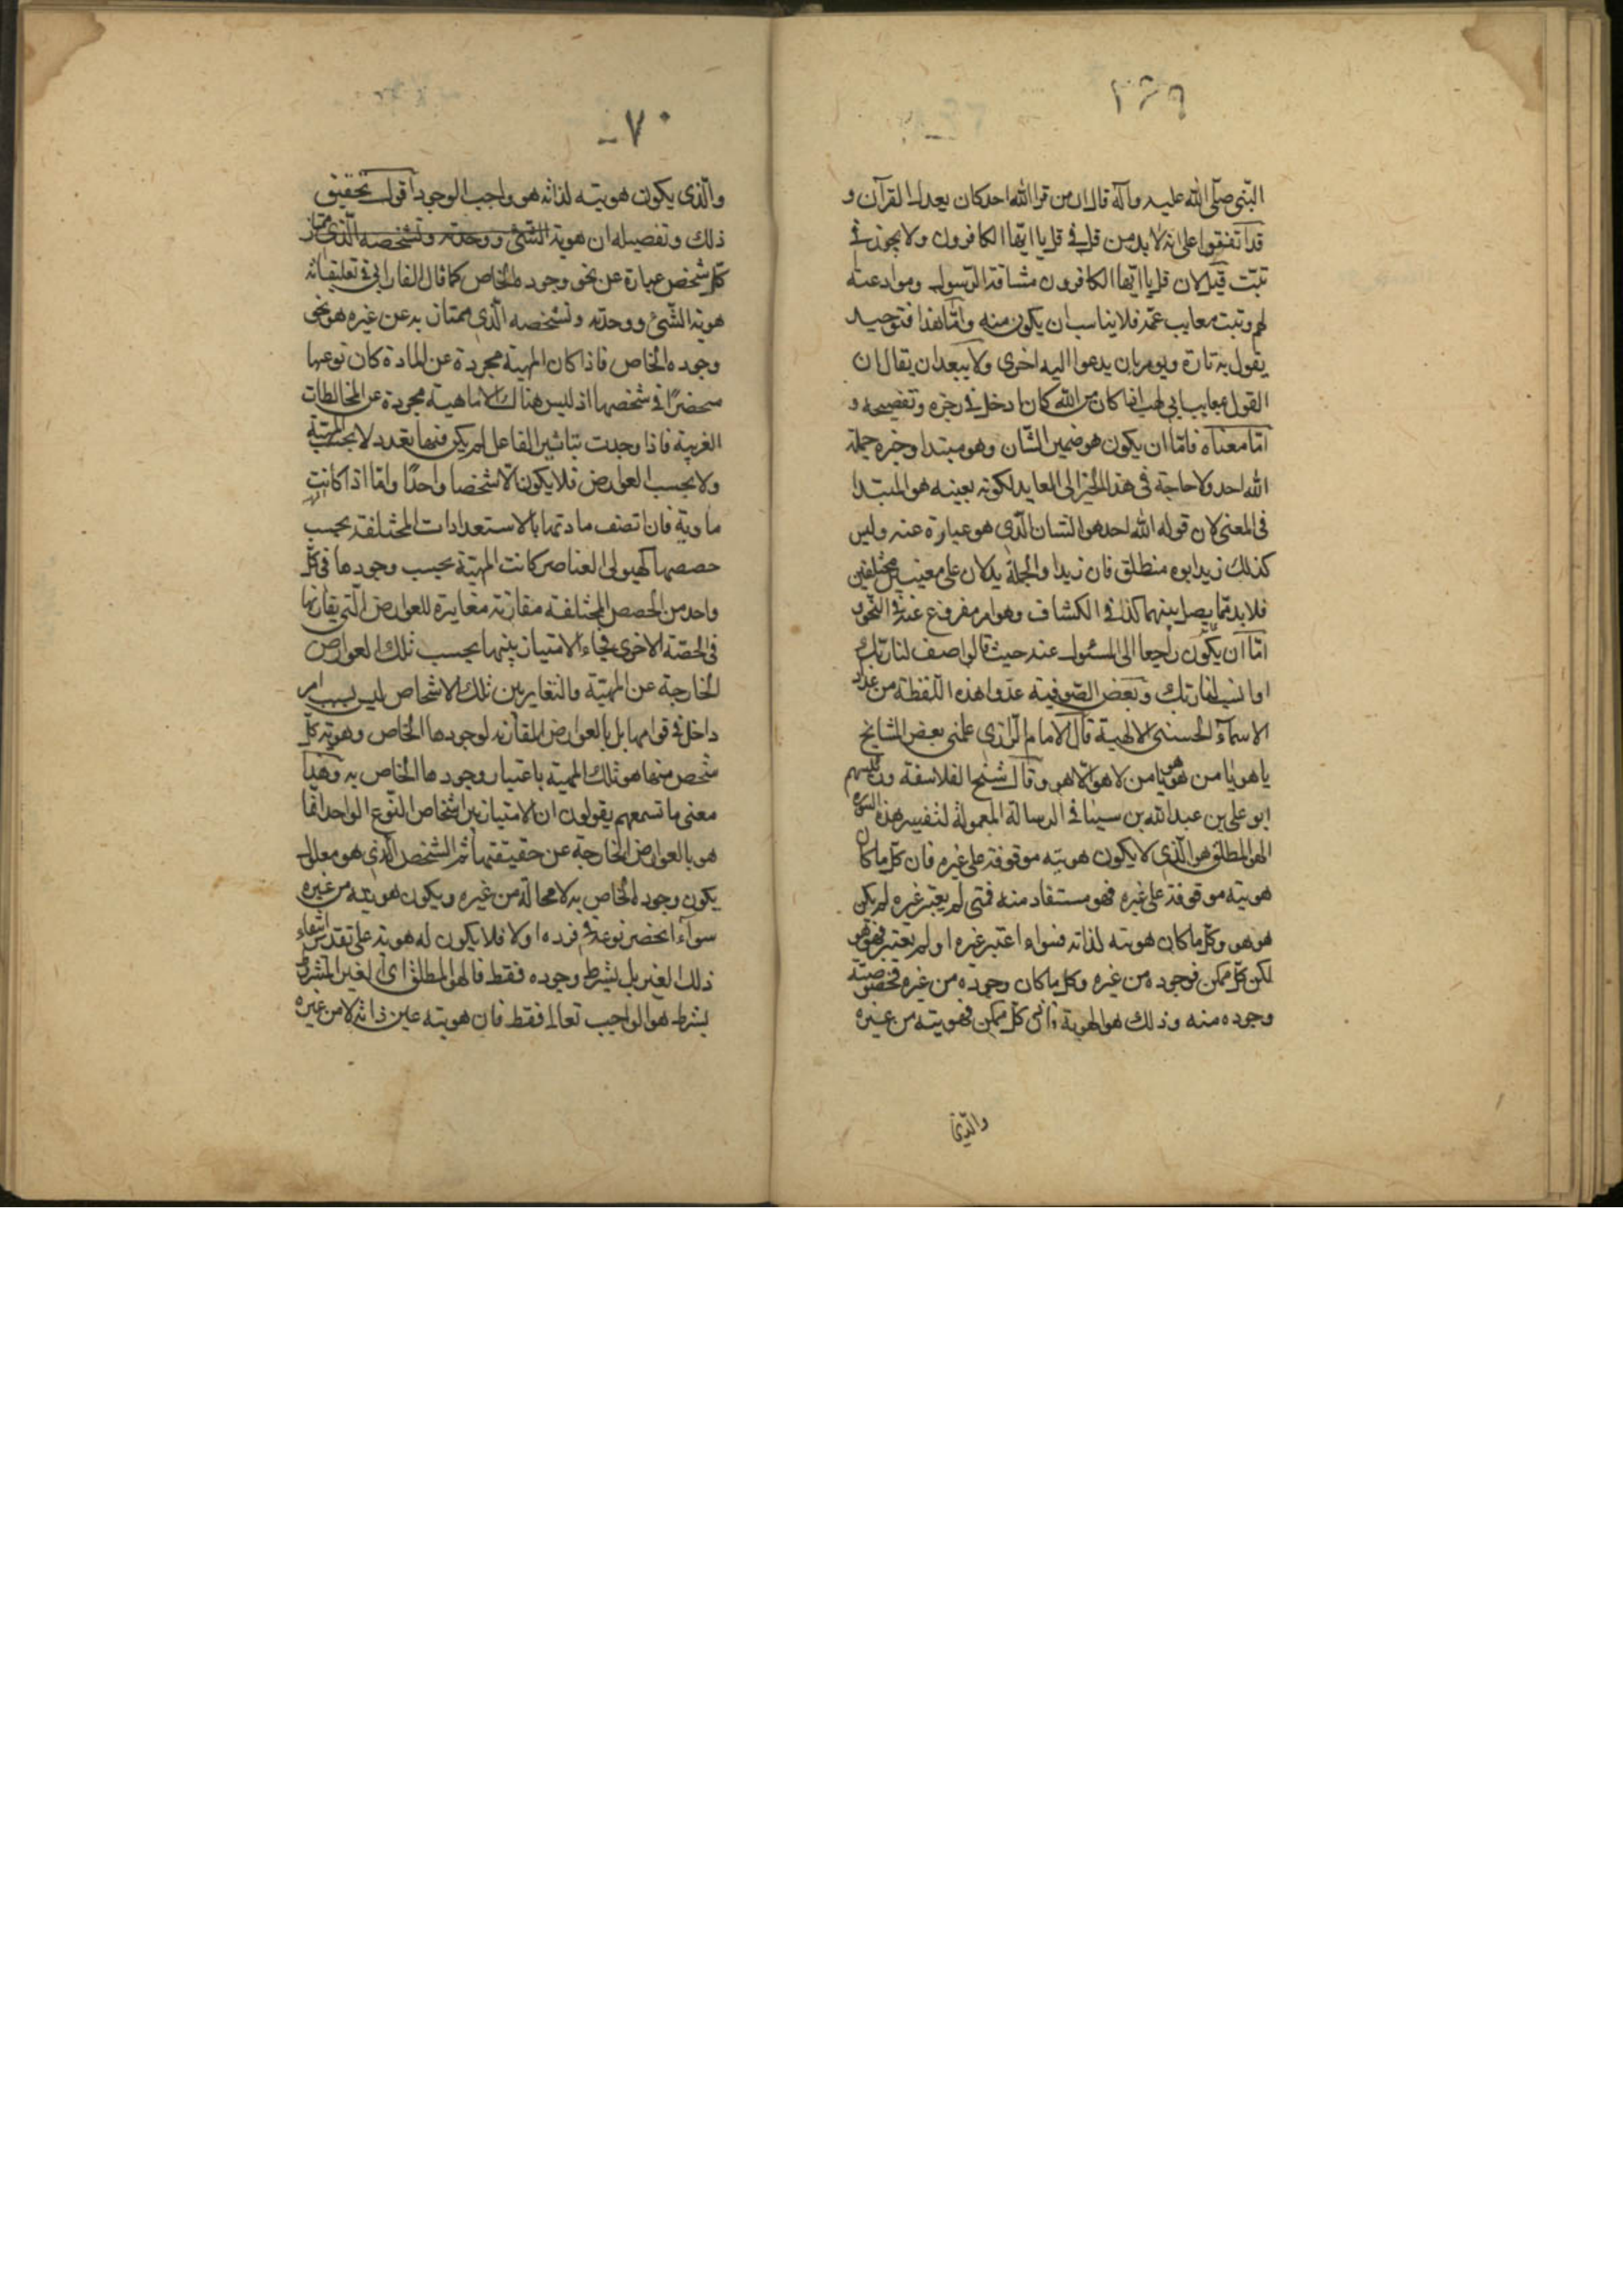 ٢٦٩
النبي صلى الله عليه وآله قال ان من قرا الله احد كان يعدل القرآن و
قد اتفقوا على انه لا بد من قل في قل يا ايها الكافرون ولا يجوز في
تبت قيل لان قل يا ايها الكافرون مشاقة الرسول وموادعته
لهم وتبت معايب عمه فلا يناسب ان يكون منه وامّا هذا فتوحيد
يقول به تارة ويومر بان يدعوا اليه اخرى ولا يبعد ان يقال ان
القول بمعايب ابي لهب اذا كان من الله كان ادخل في زجره وتفضيحه و
امّا معناه فامّا ان يكون هو ضمير الشان وهو مبتدا وخبره جملة
الله احد ولا حاجة في هذا الخبر الى العايد لكونه بعينه هو المبتدا
في المعنى لان قوله الله احد هو الشان الّذي هو عبارة عنه وليس
كذلك زيد ابوه منطلق فان زيدا والجملة يدلان على معنيين مختلفين
فلا بد ممّا يصل بينهما كذا في الكشاف وهو امر مفروغ عنه في النحو و
امّا ان يكون راجعا الى المسئول عنه حيث قالوا صف لنا ربّك
او انسب لنا ربّك وبعض الصّوفية عدوا هذه اللّفظة من عداد
الاسمآء الحسنى الالهية قال الامام الرّازي علمني بعض المشايخ
يا هو يا من هو هو يا من لا هو الّا هو وقال شيخ الفلاسفة ورئيسهم
ابو على بن عبد الله بن سينا في الرسالة المعمولة لتفسير هذه السورة
الهو المطلق هو الّذي لا يكون هويته موقوفة على غيره فان كلّ ما كان
هويته موقوفة على غيره فهو مستفاد منه فمتى لم يعتبر غيره لم يكن
هو هو وكلّ ما كان هويته لذاته فسواء اعتبر غيره او لم يعتبر فهو هو
لكن كلّ ممكن فوجوده من غيره وكل ما كان وجوده من غيره فخصوصيّة
وجوده منه وذلك هو الهوية فاذن كلّ ممكن فهويته من غيره
والّذي
٧٠
والّذي يكون هويته لذاته هو واجب الوجود اقول تحقيق
ذلك وتفصيله ان هوية الشئ ووحدته وتشخصه الّذي يمتاز
كلّ شخص عبارة عن نحو وجوده الخاص كما قال الفارابي في تعليقاته
هوية الشّئ ووحدته وتشخصه الّذي يمتاز به عن غيره هو نحو
وجوده الخاص فاذا كان المهية مجردة عن المادة كان نوعها
منحصرًا في شخصها اذ ليس هناك الا ماهية مجردة عن المخالطات
الغريبة فاذا وجدت بتاثير الفاعل لم يكن فيها تعدد لا بحسب المهيّة
ولا بحسب العوارض فلا يكون الّا شخصا واحدًا وامّا اذا كانت
مادية فان اتصف مادتها بالاستعدادات المختلفة بحسب
حصصها كهيولى العناصر كانت المهيّة بحسب وجودها في كلّ
واحد من الحصص المختلفة مقارنة مغايرة للعوارض الّتي يقارنها
في الحصّة الاخرى فجاء الامتياز بينها بحسب تلك العوارض
الخارجة عن المهيّة والتغاير بين تلك الاشخاص ليس بسبب امر
داخل في قوامها بل بالعوارض المقارنة لوجودها الخاص وهوية كلّ
شخص منها هو تلك المهية باعتبار وجودها الخاص به وهذا
معنى ما تسمعهم يقولون ان الامتياز بين اشخاص النّوع الواحد انّما
هو بالعوارض الخارجة عن حقيقتها ثم الشخص الّذي هو معلول
يكون وجوده الخاص به لا محالة من غيره ويكون هويته من غيره
سوآء انحصر نوعه في فرده اولا فلا يكون له هوية على تقدير انتفاء
ذلك الغير بل بشرط وجوده فقط فالهو المطلق اى الغير المشروط
بشرط هو الواجب تعالى فقط فان هويته عين ذاته لا من غيره